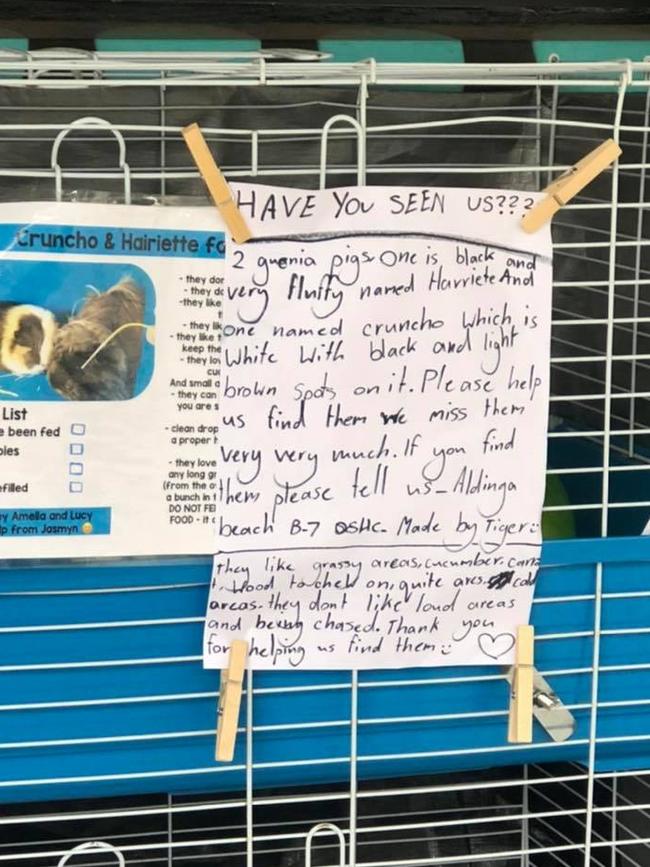 HAVE YOU SEEN US???
2 guenia pigs. One is black and
very fluffy named Harriete And
one named cruncho which is
white with black and light
brown spots on it. Please help
us find them we miss them
very very much. If you find
them please tell us - Aldinga
beach B-7 OSHC. Made by Tiger :)
they like grassy areas, cucumber, carr
t, wood to chew on, quite ares. cold
areas. they dont like loud areas
and being chased. Thank you
for helping us find them :)
Cruncho & Hairiette fo
- they dor
- they do
-they like
- they lik
- they like t
keep the
- they lov
cu
And small a
- they can
you are s
- clean drop
a proper h
- they love
any long gr
(from the o
a bunch in t
DO NOT FE
FOOD - it c
List
e been fed
bles
efilled
ey Amelia and Lucy
lp from Jasmyn